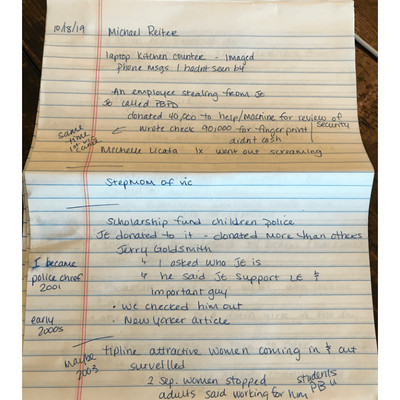 10/18/19 Michael Reiter
laptop kitchen counter - imaged
phone msgs I hadnt seen by
An employee stealing from Je
Je called PBPD
donated 40,000 to help/machine for review of security
wrote check 90,000 for fingerprint
didnt cash
same time
Michelle Licata 1x went out screaming
Stepmom of vic
Scholarship fund children police
JE donated to it - donated more than others
Jerry Goldsmith
I became police chief 2001
↳ I asked who JE is
↳ he said JE support LE &
important guy
• we checked him out
early 2000s
• New Yorker article
maybe 2003
tipline attractive women coming in & out
surveilled
2 sep. women stopped students
adults said working for him PBU